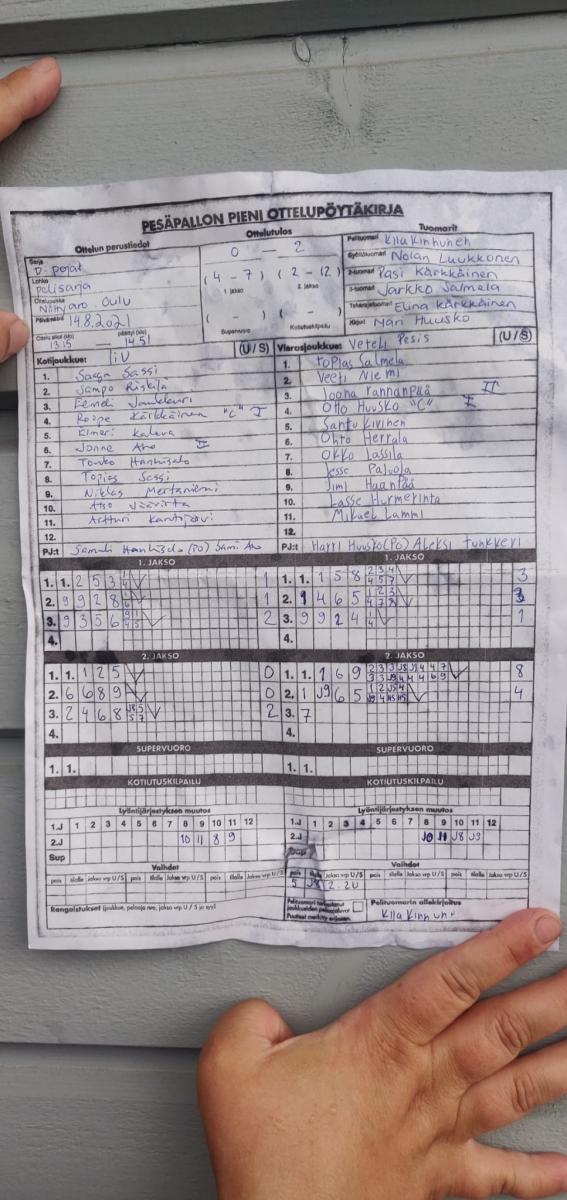 PESÄPALLON PIENI OTTELUPÖYTÄKIRJA
Ottelun perustiedot
Sarja
D-pojat
Lohko
pelisarja
Ottelupaikka
Niittyaro. Oulu
Päivämäärä 14.8.2021
13.15 — 14.51
Ottelutulos
0 — 2
(4 - 7) (2 - 12)
1. jakso 2. jakso
( - ) ( - )
Supervuoro Kotiutuskilpailu
Tuomarit
Pelituomari Kiia Kinnunen
Syöttötuomari Nolan Luukkonen
2-tuomari Pasi Kärkkäinen
3-tuomari Jarkko Salmela
Takarajatuomari Elina Kärkkäinen
Kirjuri Nari Huusko
Kotijoukkue: TiU (U/S)
1. Saaga Sassi
2. Sampo Riskilä
3. Eemeli
4. Roope Kärkkäinen "C" I
5. Elmeri Kaleva
6. Jonne Aho II
7. Touko Hanhisalo
8. Topias Sassi
9. Niklas Mertaniemi
10. Atso Väärirta
11. Artturi
12.
PJ:t Samuli Hanhisalo (PO) Sami Aho
Vierasjoukkue: Veteli Pesis (U/S)
1. Topias Salmela
2. Veeti Niemi
3. Joona Pannanpää II
4. Otto Huusko "C" I
5. Santu Kivinen
6. Ohto Herrala
7. Okko Lassila
8. Jesse Palvola
9. Jimi Haanpää
10. Lasse Hurmerinta
11. Mikael Lammi
12.
PJ:t Harri Huusko (PO) Aleksi Tunkkari
1. JAKSO
1. 1. 2 5 3 1
2. 9 9 2 8 1
3. 9 3 5 6 2
4.
2. JAKSO
1. 1. 1 2 5 0
2. 6 6 8 9 0
3. 2 4 6 8 2
4.
SUPERVUORO
1. 1.
KOTIUTUSKILPAILU
1. JAKSO
1. 1. 1 5 8 3
2. 1 4 6 5 3
3. 9 9 2 4 1
4.
2. JAKSO
1. 1. 1 6 9 8
2. 1 J9 6 5 4
3. 7
4.
SUPERVUORO
1. 1.
KOTIUTUSKILPAILU
Lyöntijärjestyksen muutos
1.J 1 2 3 4 5 6 7 8 9 10 11 12
2.J 10 11 8 9
Sup
Vaihdot
pois tilalle jakso vrp U/S pois tilalle jakso vrp U/S pois tilalle jakso vrp U/S
Rangaistukset (joukkue, pelaaja nro, jakso vrp U/S ja syy)
Lyöntijärjestyksen muutos
1.J 1 2 3 4 5 6 7 8 9 10 11 12
2.J 10 11 J8 J9
Sup
Vaihdot
pois tilalle jakso vrp U/S pois tilalle jakso vrp U/S pois tilalle jakso vrp U/S
5 J8 2. 2U
Pelituomarin allekirjoitus
Kiia Kinnune